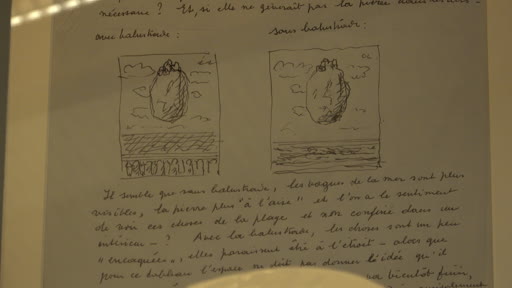 nécessaire ? Et, si elle ne gênerait pas la pierre dans
avec balustrade :
sans balustrade :
Il semble que sans balustrade, les vagues de la mer sont plus
visibles, la pierre plus "à l'aise" et l'on a le sentiment
de voir ces choses de la plage et non confiné dans un
intérieur - ? Avec la balustrade, les choses sont un peu
"encaquées", elles paraissent être à l'étroit - alors que
pour ce tableau l'espace ne doit pas donner l'idée qu'il
bientôt finir,